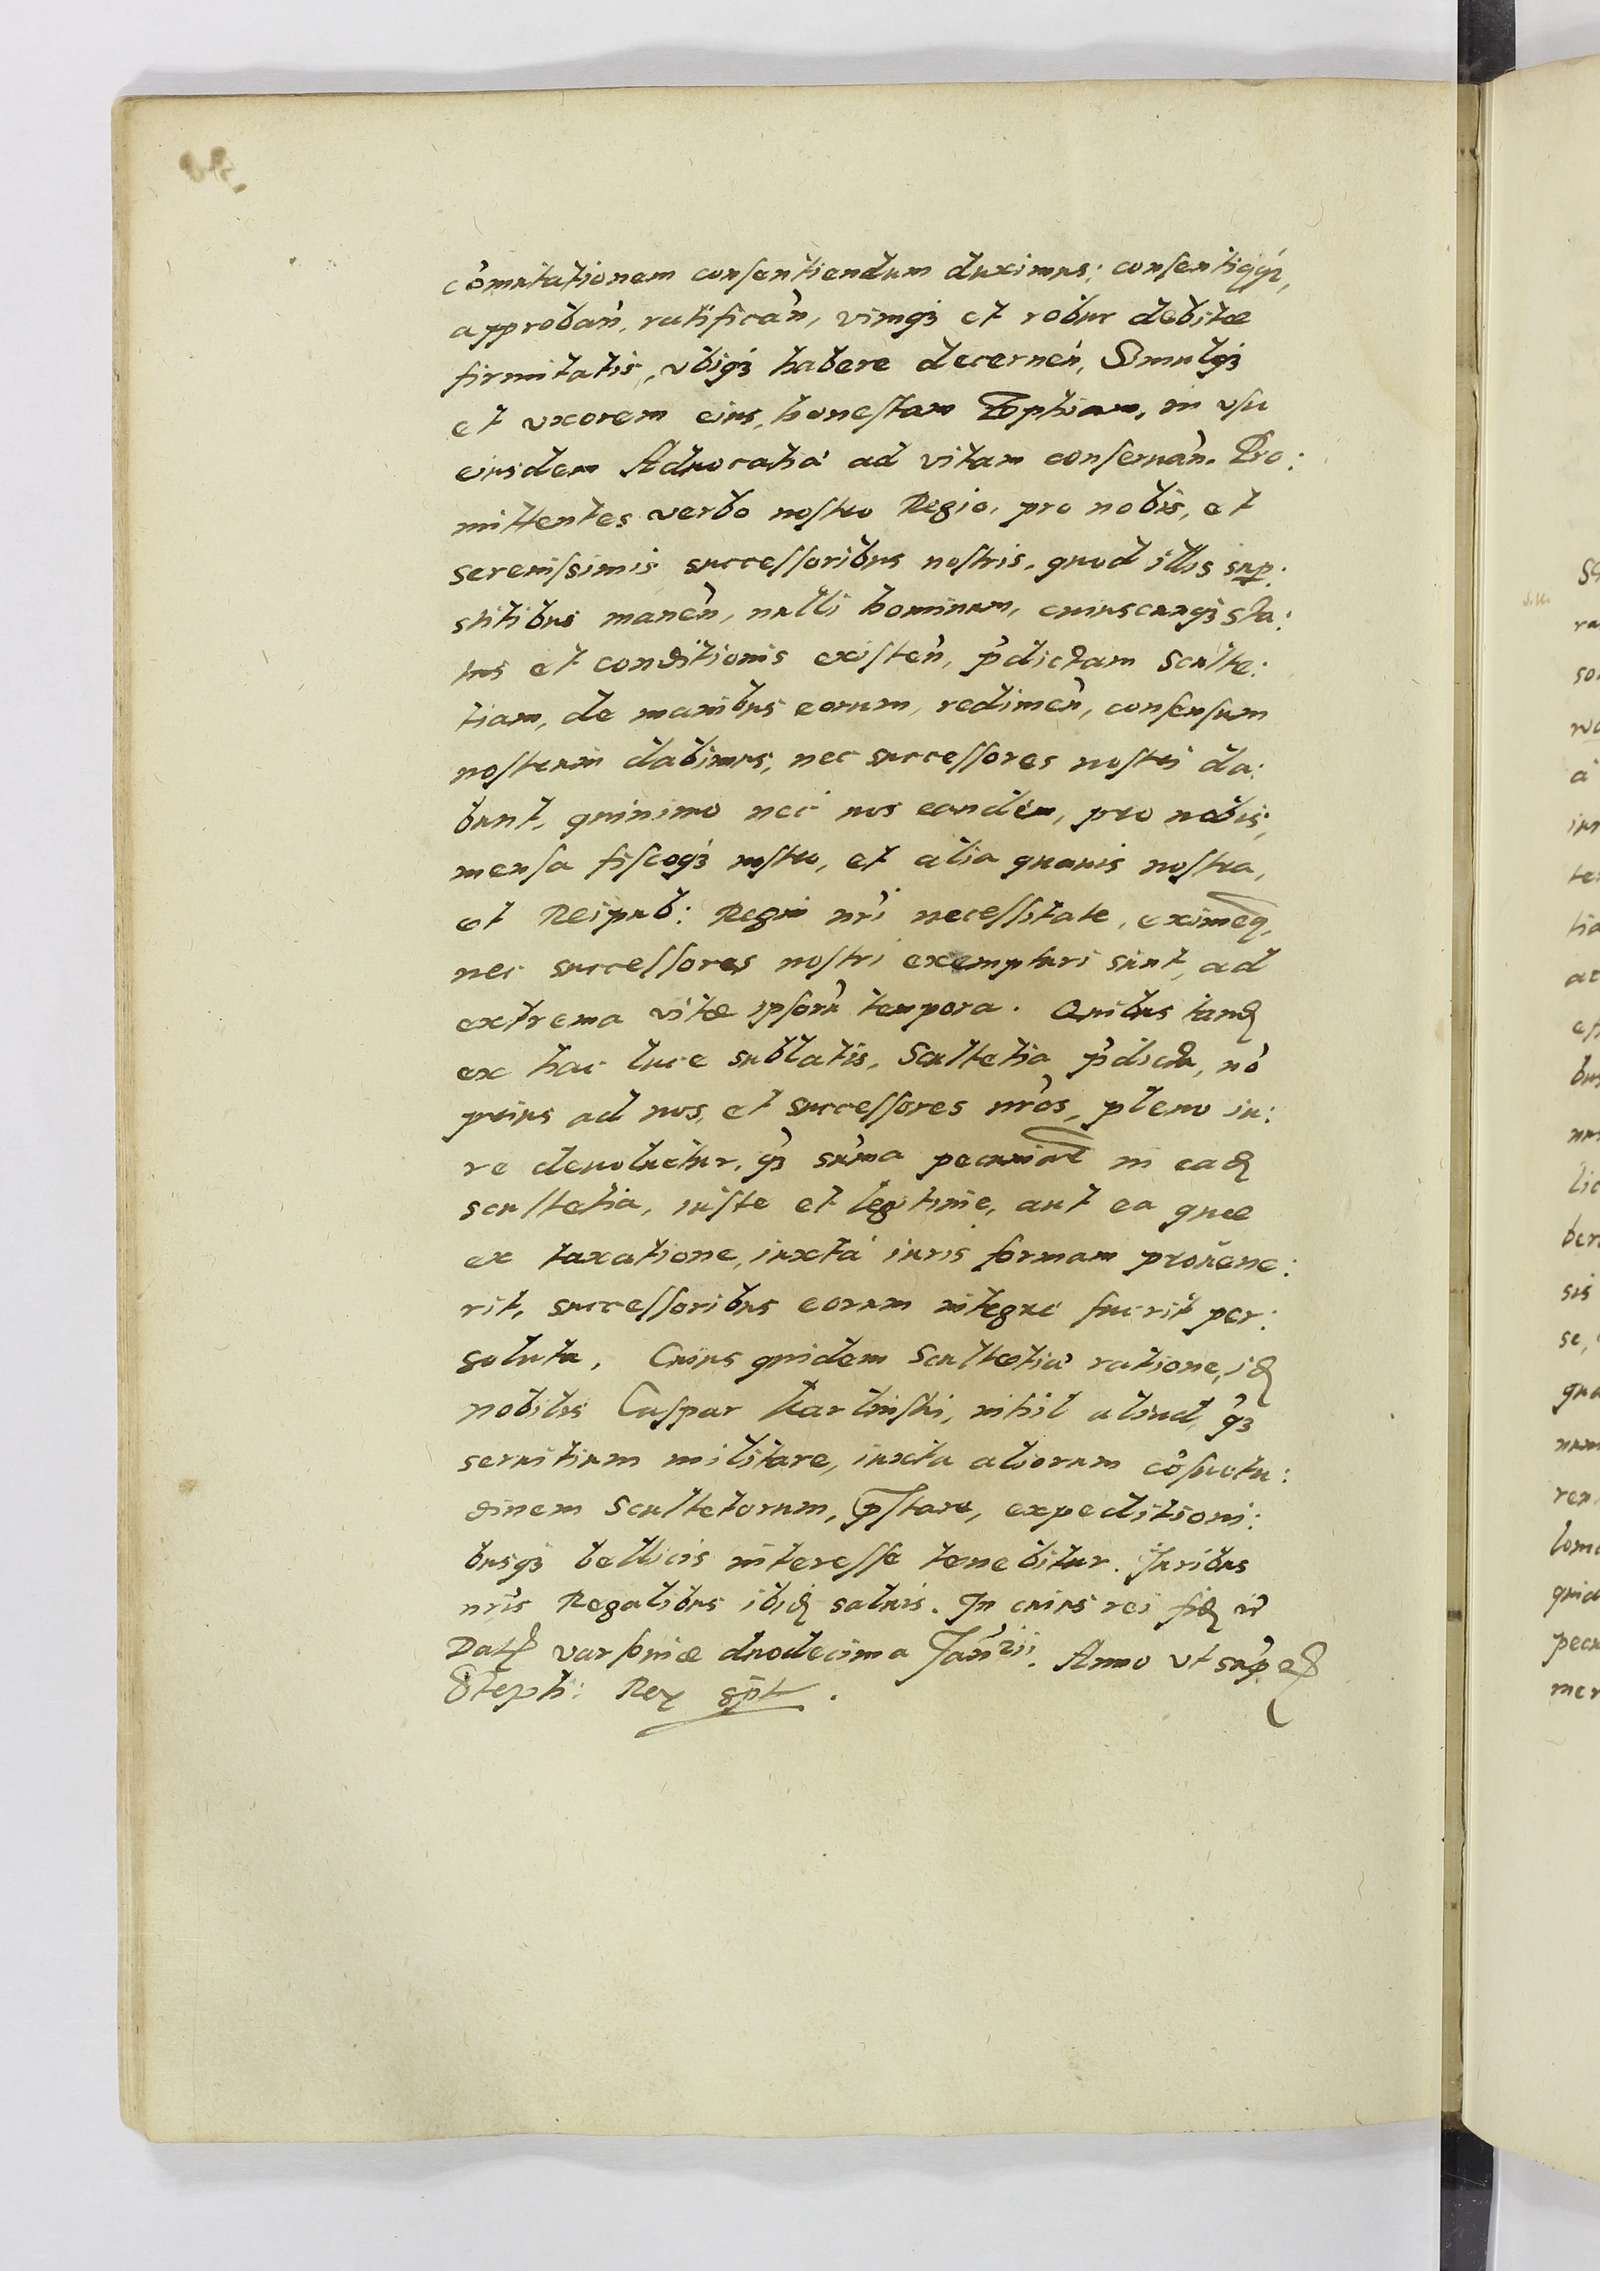 cõmutationem consentiendum duximus: consentiqꝫ,
approbañ, ratificañ, vimqꝫ et robur debitæ
firmitatis, vbiqꝫ habere decerneñ, Simulqꝫ
et vxorem eius, honestam Zophiam, in vsu
eiusdem Aduocatiæ ad vitam conseruañ. Pro:
mittentes verbo nostro Regio, pro nobis, et
serenissimis successoribus nostris, quod illis sup:
stitibus maneñ, nulli hominum, cuiuscunqꝫ sta:
tus et conditionis existeñ, p̃dictam Sculte:
tiam, de manibus eorum, redimeñ, consensum
nostrum dabimus, nec successores nostri da:
bunt, quinimo nec nos eandem, pro nobis,
mensa fiscoqꝫ nostro, et alia quauis nostra,
et Reipub: Regni nr̃i necessitate, eximeꝫ,
nec successores nostri exempturi sunt, ad
extrema vitæ ipsorũ tempora. Quibus tandẽ
ex hac luce sublatis, Scultetia p̃dicta, nõ
prius ad nos, et successores nr̃os, pleno iu:
re deuoluetur, qꝫ sum̃a pecuniaꝝ in eadẽ
scultetia, iuste et legitime, aut ea quæ
ex taxatione, iuxta iuris formam prouene:
rit, successoribus eorum integre fuerit per:
soluta. Cuius quidem Scultetiæ ratione, idẽ
nobilis Caspar Karlinski, nihil aliud, qꝫ
seruitium militare, iuxta aliorum cõsuetu:
dinem Scultetorum, p̃stare, expeditioni:
busqꝫ bellicis interesse tenebitur. Iuribus
nr̃is Regalibus ibidẽ saluis. In cuius rei fidẽ
Datꝭ varsouiæ duodecima Jan̄rii. Anno vt sup̃
Steph: Rex